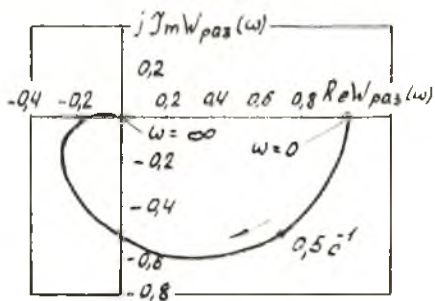 j JmWраз(ω)
0,2
-0,4 -0,2 0,2 0,4 0,6 0,8 ReWраз(ω)
ω=∞
ω=0
-0,2
-0,4
0,5 c⁻¹
-0,6
-0,8